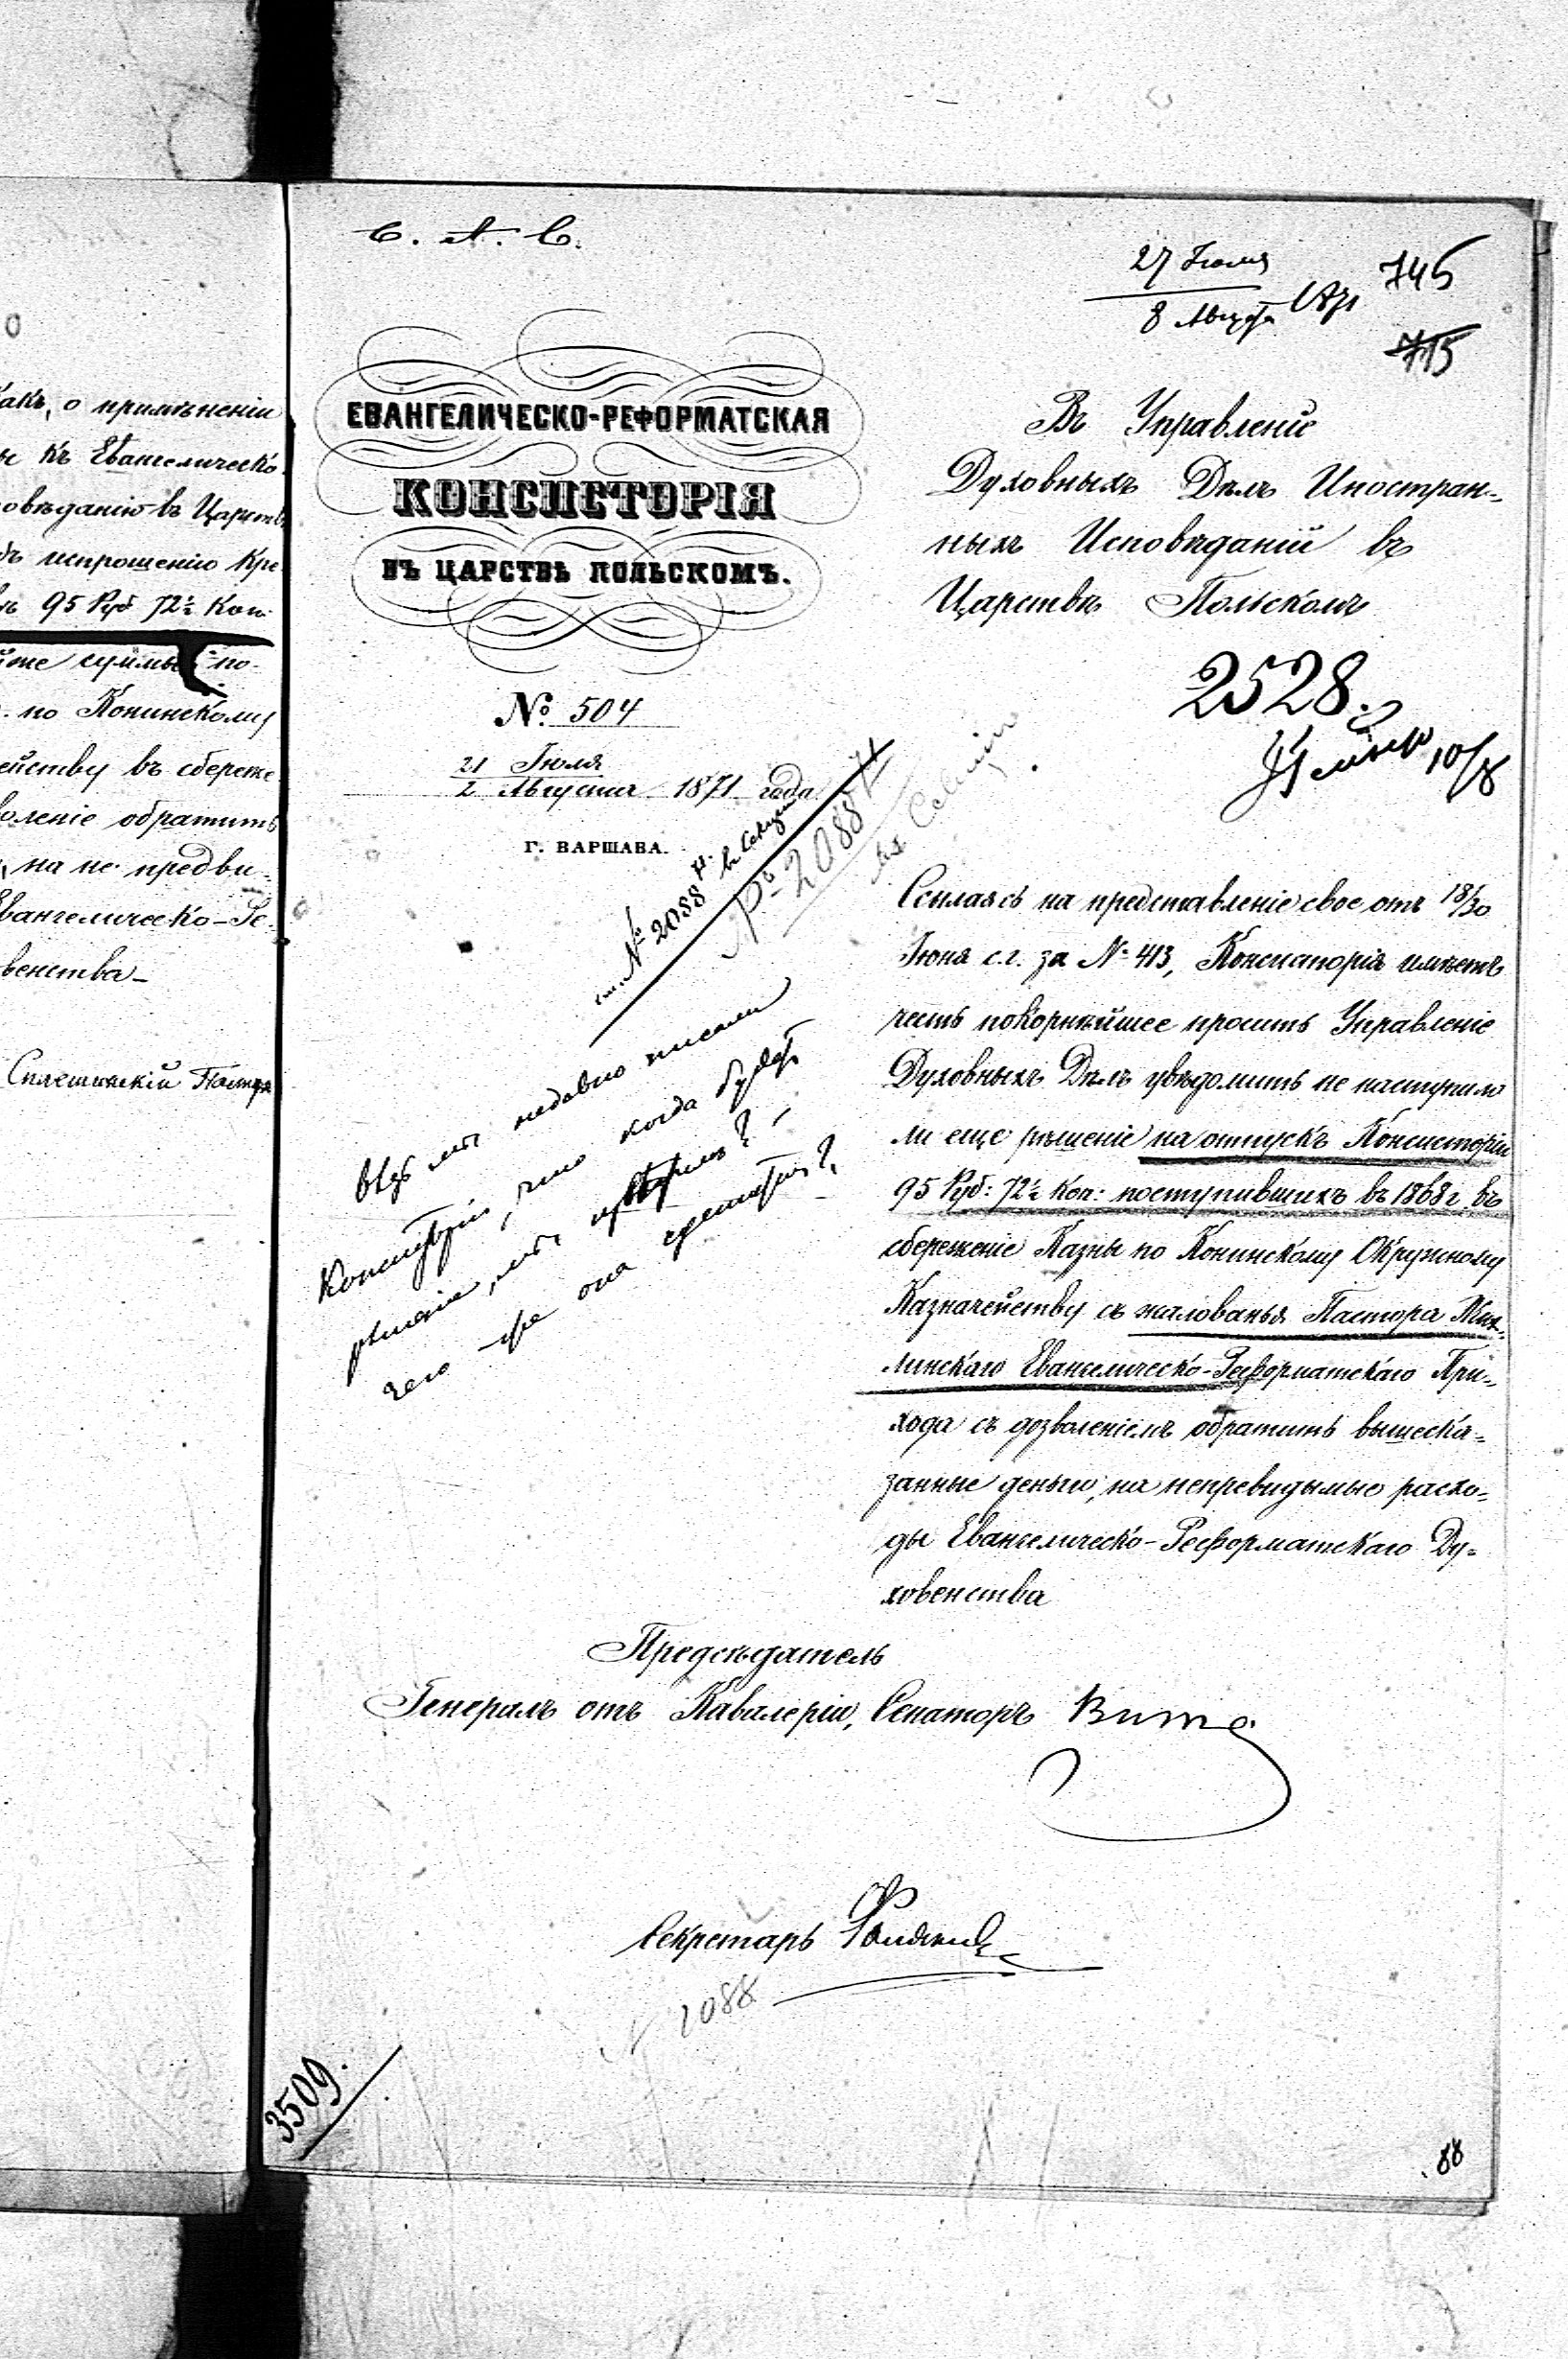 акъ, о примѣненіи
ы къ Евангелическо
овѣданію въ Царств
бъ испрошенію Кре
ъ 95 Руб 72½ Коп.
суммы по-
по Конинскому
ейству въ сбереже
воленіе обратить
, на не предви-
Евангелическо-Ре-
венства
Пастора
С. А. С.
27 Іюля
8 Августа
745
715
ЕВАНГЕЛИЧЕСКО-РЕФОРМАТСКАЯ
КОНСИСТОРІЯ
ВЪ ЦАРСТВѢ ПОЛЬСКОМЪ.
№ 504
21 Іюля
2 Августа 1871 года
Г. ВАРШАВА.
Въ Управленіе
Духовныхъ Дѣлъ Иностран-
ныхъ Исповѣданій въ
Царствѣ Польскомъ
2528.
10/8
№ 2088
№ 2088
Вѣдь мы недавно писали
Консисторіи, что когда будетъ
рѣшеніе, мы
чего же она
Ссылаясь на представленіе свое отъ 18/30
Іюня с.г. за № 413, Консисторія имѣетъ
честь покорнѣйшее просить Управленіе
Духовныхъ Дѣлъ увѣдомить не наступило
ли еще рѣшеніе на отпускъ Консисторіи
95 Руб: 72½ Коп: поступившихъ въ 1868 г. въ
сбереженіе Казны по Конинскому Окружному
Казначейству съ жалованья Пастора Жих-
линскаго Евангелическо-Реформатскаго При-
хода съ дозволеніемъ обратить вышеска-
занные деньги, на непревидымые расхо-
ды Евангелическо-Реформатскаго Ду-
ховенства
Предсѣдатель
Генералъ отъ Кавалеріи, Сенаторъ Витте
Секретарь
2088
3509.
88